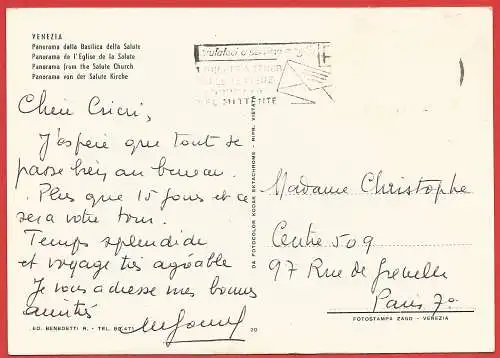 VENEZIA
Panorama dalla Basilica della Salute
Panorama de l'Eglise de la Salute
Panorama from the Salute Church
Panorama von der Salute Kirche
MITTENTE
Cheri Cricri,
J'espère que tout se
passe bien au bureau.
Plus que 15 jours et ce
sera votre tour.
Temps splendide
et voyage très agréable
Je vous adresse mes bonnes
amitiés
ED. BENEDETTI R. - TEL.
20
DA FOTOCOLOR KODAK EKTACHROME - RIPR. VIETATA
Madame Christophe
Centre 509
97 Rue de Grenelle
Paris 7e
FOTOSTAMPA ZAGO - VENEZIA